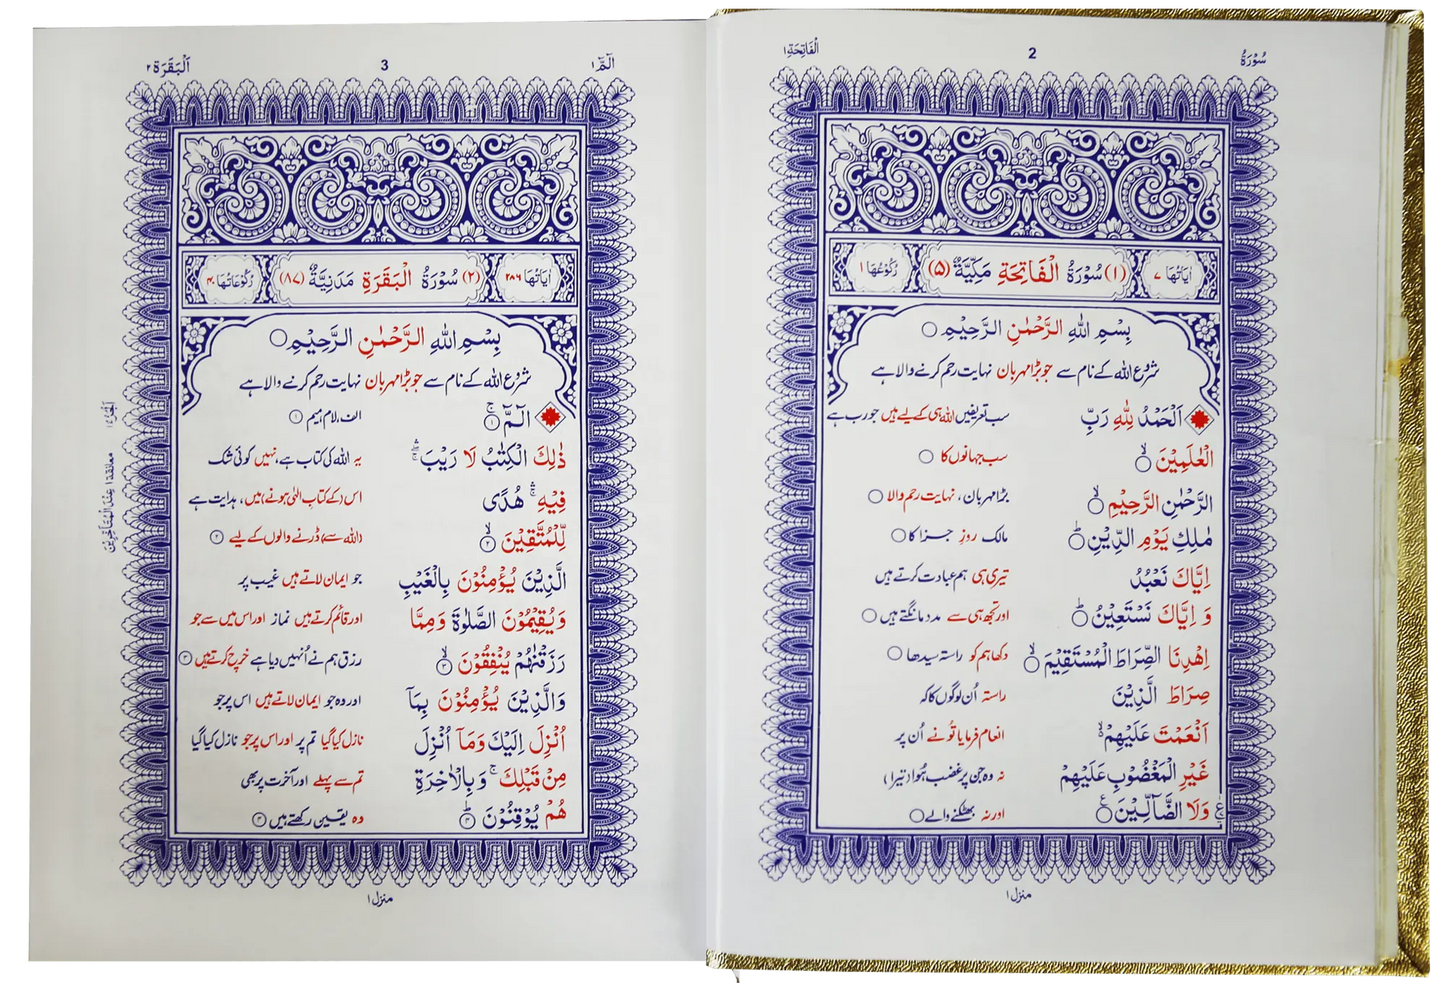 سُوْرَةُ 2 اَلْفَاتِحَة ١
اٰيَاتُهَا ٧ (١) سُوْرَةُ الْفَاتِحَةِ مَكِّيَّةٌ (۵) رُكُوْعُهَا ١
بِسْمِ اللّٰهِ الرَّحْمٰنِ الرَّحِيْمِ ○
شروع اللہ کے نام سے جو بڑا مہربان نہایت رحم کرنے والا ہے
اَلْحَمْدُ لِلّٰهِ رَبِّ سب تعریفیں اللہ ہی کے لیے ہیں جو رب ہے
الْعٰلَمِيْنَ ○ سب جہانوں کا ○
الرَّحْمٰنِ الرَّحِيْمِ ○ بڑا مہربان، نہایت رحم والا ○
مٰلِكِ يَوْمِ الدِّيْنِ ○ مالک روزِ جزا کا ○
اِيَّاكَ نَعْبُدُ تیری ہی ہم عبادت کرتے ہیں
وَ اِيَّاكَ نَسْتَعِيْنُ ○ اور تجھ ہی سے مدد مانگتے ہیں ○
اِهْدِنَا الصِّرَاطَ الْمُسْتَقِيْمَ ○ دکھا ہم کو راستہ سیدھا ○
صِرَاطَ الَّذِيْنَ راستہ اُن لوگوں کا کہ
اَنْعَمْتَ عَلَيْهِمْ انعام فرمایا تُو نے اُن پر
غَيْرِ الْمَغْضُوْبِ عَلَيْهِمْ نہ وہ جن پر غضب ہُوا (تیرا)
وَلَا الضَّآلِّيْنَ ○ اور نہ بھٹکنے والے ○
منزل ١
الٓمّٓ ١ 3 اَلْبَقَرَة ٢
اٰيَاتُهَا ٢٨٦ (٢) سُوْرَةُ الْبَقَرَةِ مَدَنِيَّةٌ (٨٧) رُكُوْعَاتُهَا ٤٠
بِسْمِ اللّٰهِ الرَّحْمٰنِ الرَّحِيْمِ ○
شروع اللہ کے نام سے جو بڑا مہربان نہایت رحم کرنے والا ہے
الٓمّٓ ١ الف، لام، میم ١
ذٰلِكَ الْكِتٰبُ لَا رَيْبَ یہ اللہ کی کتاب ہے، نہیں کوئی شک
فِيْهِ هُدًى اس (کے کتابِ الٰہی ہونے) میں، ہدایت ہے
لِّلْمُتَّقِيْنَ ٢ (اللہ سے) ڈرنے والوں کے لیے ٢
الَّذِيْنَ يُؤْمِنُوْنَ بِالْغَيْبِ جو ایمان لاتے ہیں غیب پر
وَيُقِيْمُوْنَ الصَّلٰوةَ وَمِمَّا اور قائم کرتے ہیں نماز اور اس میں سے جو
رَزَقْنٰهُمْ يُنْفِقُوْنَ ٣ رزق ہم نے اُنہیں دیا ہے خرچ کرتے ہیں ٣
وَالَّذِيْنَ يُؤْمِنُوْنَ بِمَآ اور وہ جو ایمان لاتے ہیں اس پر جو
اُنْزِلَ اِلَيْكَ وَمَآ اُنْزِلَ نازل کیا گیا تم پر اور اس پر جو نازل کیا گیا
مِنْ قَبْلِكَ ۚ وَبِالْاٰخِرَةِ تم سے پہلے اور آخرت پر بھی
هُمْ يُوْقِنُوْنَ ٤ وہ یقین رکھتے ہیں ٤
منزل ١